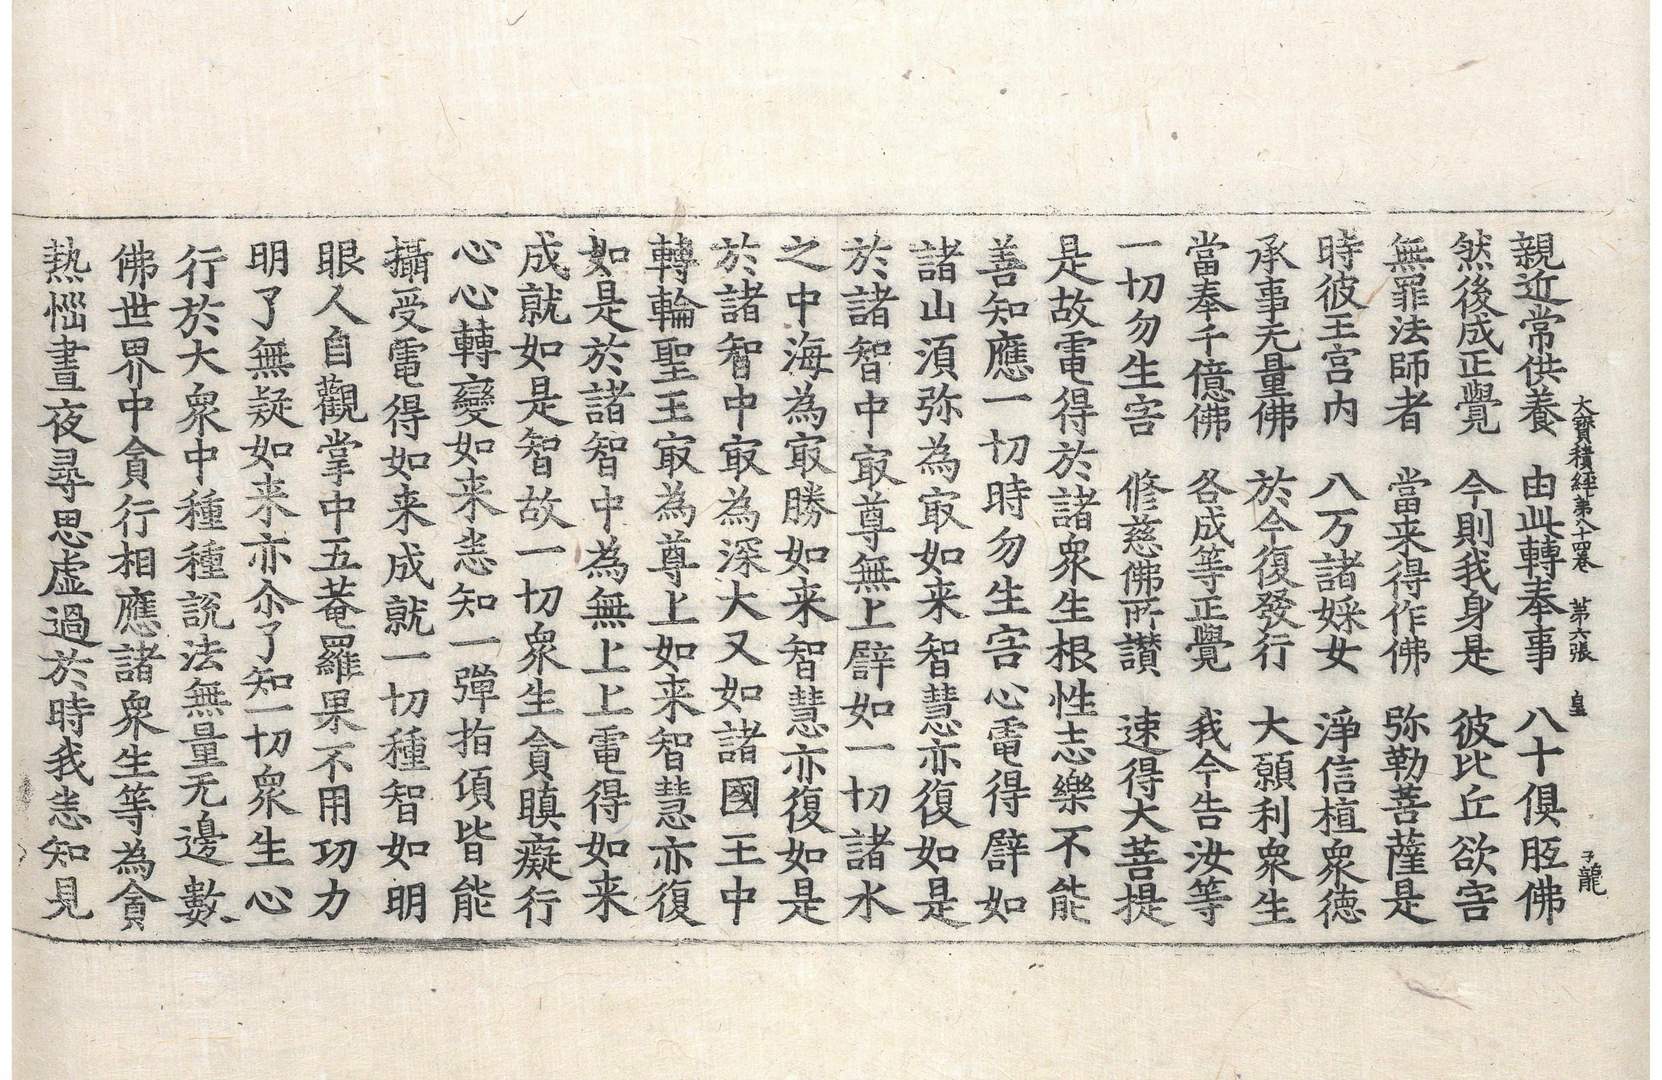 大寳積經第八十四卷 第六張 皇 子龍
親近常供養 由此轉奉事 八十俱胝佛
然後成正覺 今則我身是 彼比丘欲害
無罪法師者 當来得作佛 弥勒菩薩是
時彼王宫内 八万諸婇女 淨信植衆德
承事无量佛 於今復發行 大願利衆生
當奉千億佛 各成等正覺 我今告汝等
一切勿生害 修慈佛所讃 速得大菩提
是故電得於諸衆生根性志樂不能
善知應一切時勿生害心電得譬如
諸山湏弥為㝡如来智慧亦復如是
於諸智中㝡尊無上譬如一切諸水
之中海為㝡勝如来智慧亦復如是
於諸智中㝡為深大又如諸國王中
轉輪聖王㝡為尊上如来智慧亦復
如是於諸智中為無上上電得如来
成就如是智故一切衆生貪瞋癡行
心心轉變如来悉知一彈指頃皆能
攝受電得如来成就一切種智如明
眼人自觀掌中五菴羅果不用功力
明了無疑如来亦尒了知一切衆生心
行於大衆中種種說法無量无邊數
佛世界中貪行相應諸衆生等為貪
熱惱晝夜尋思虛過於時我悉知見